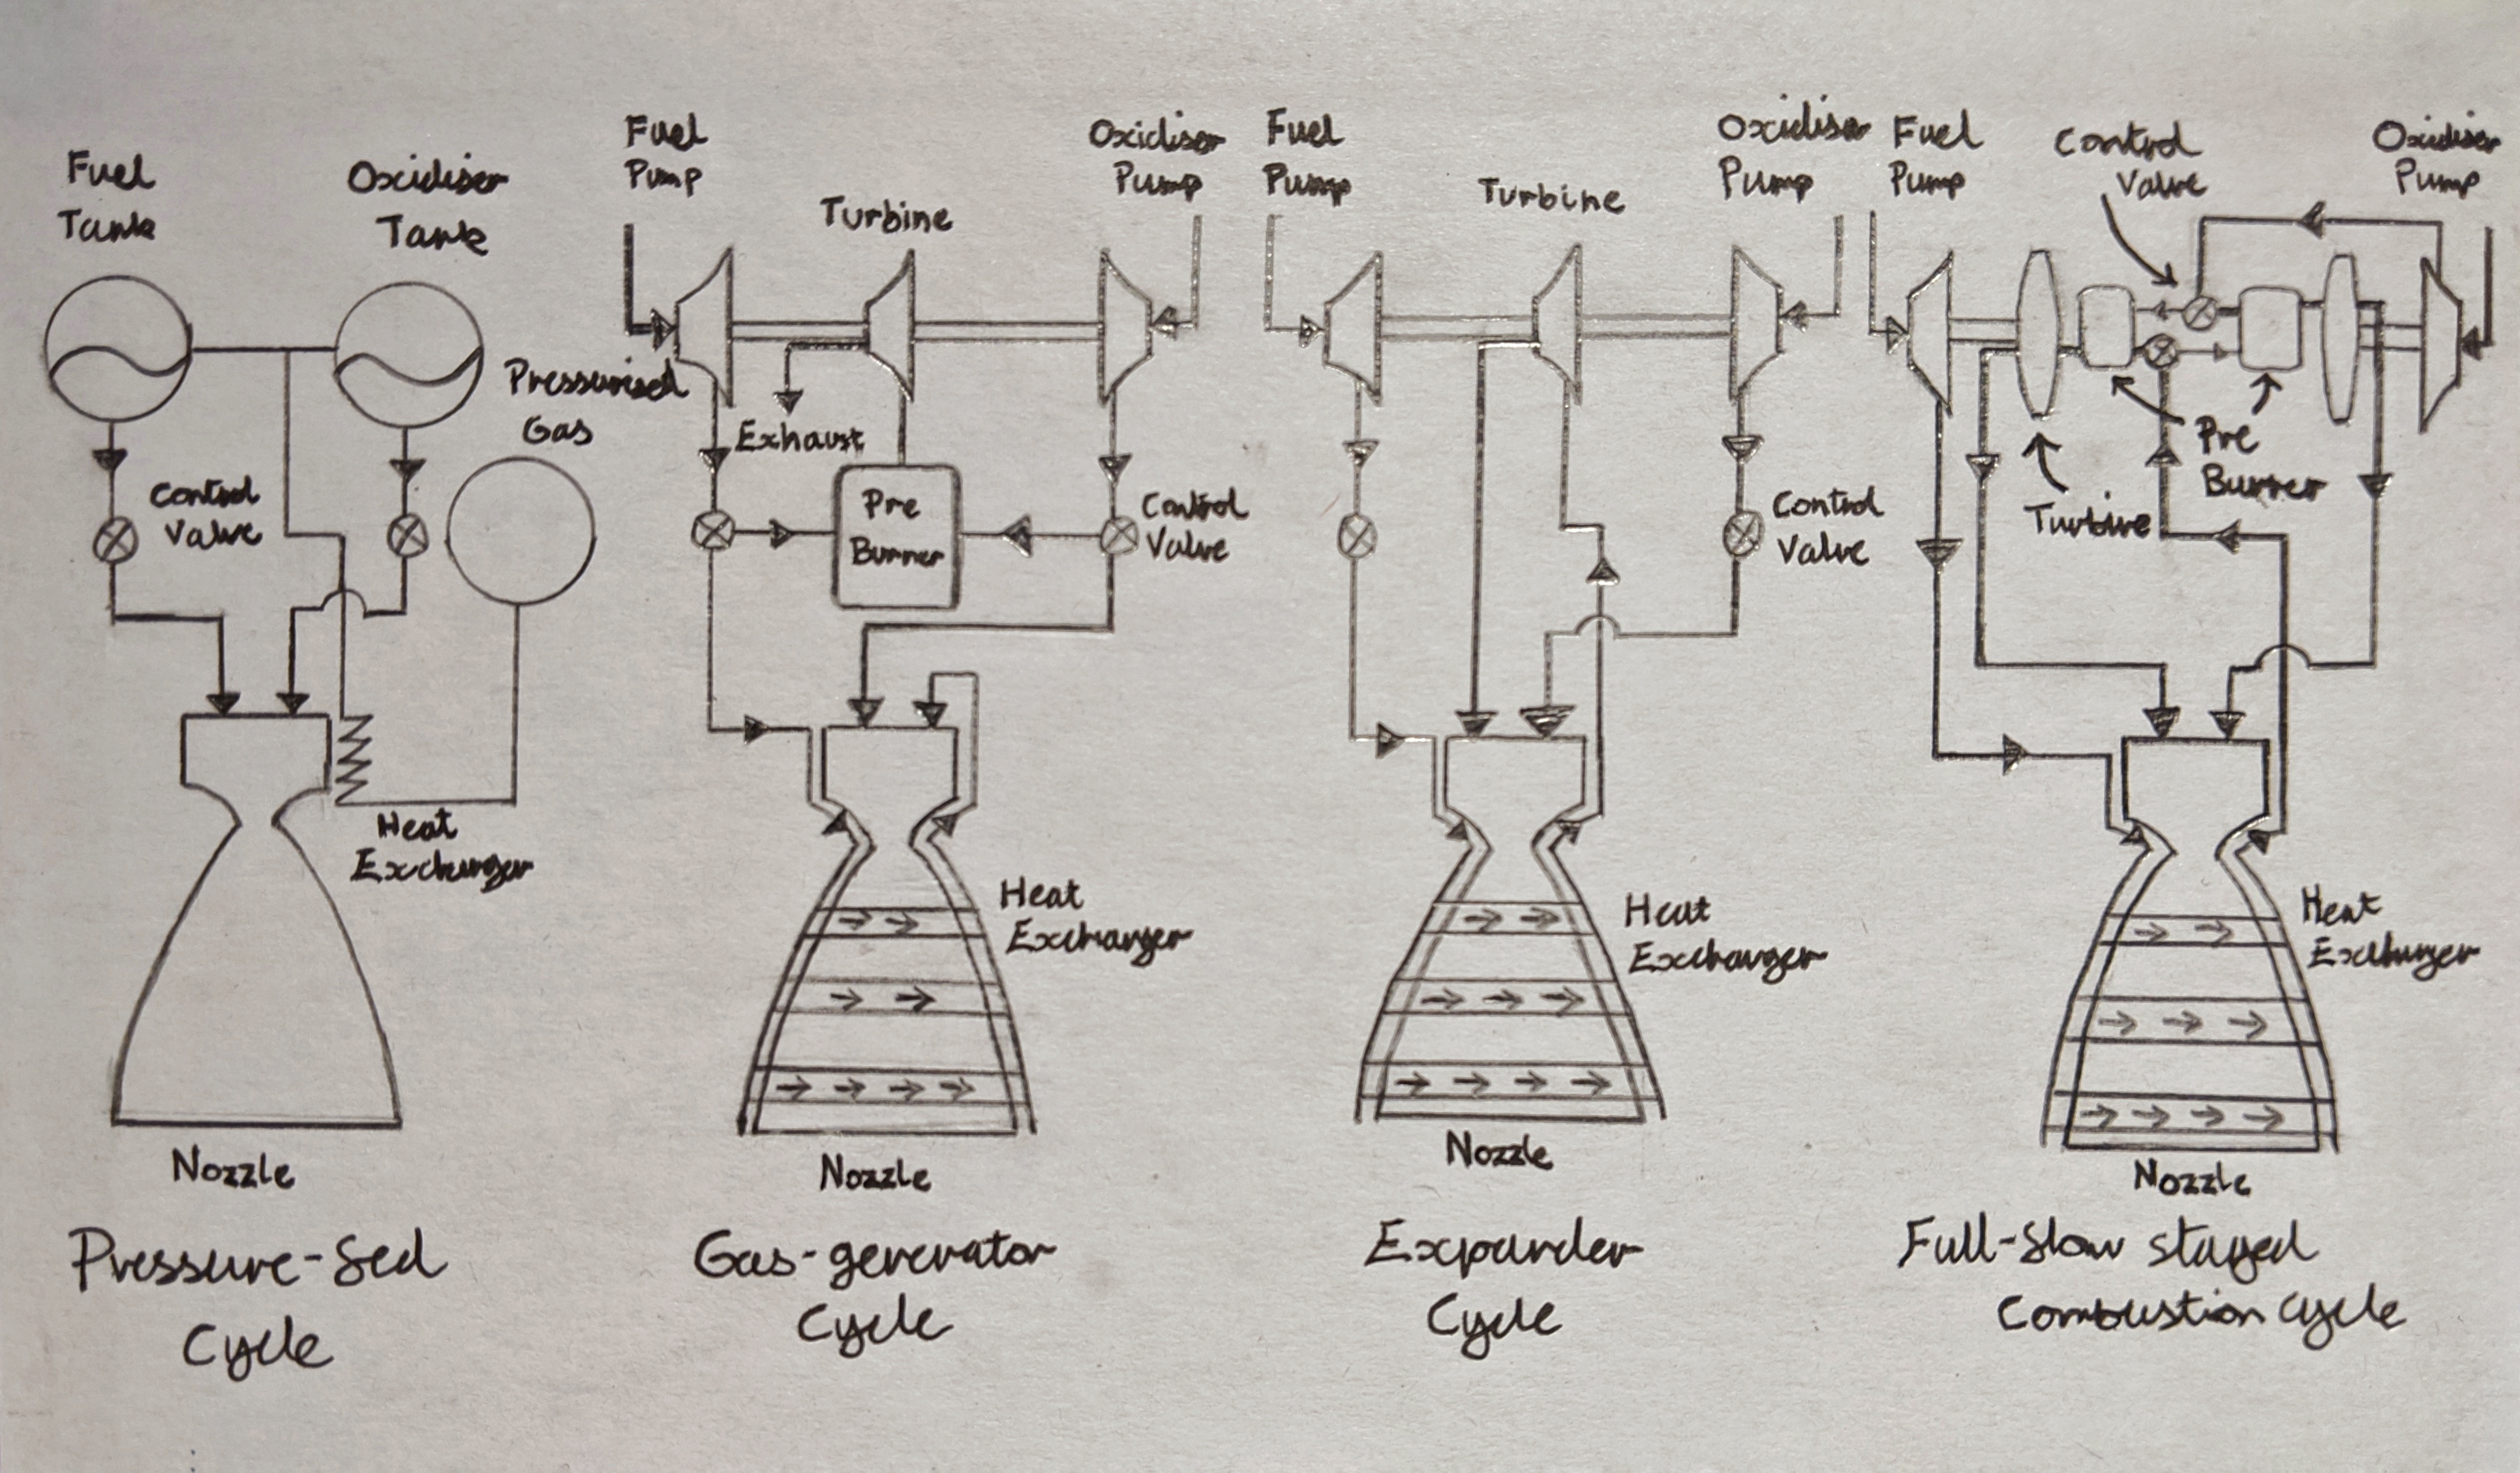 Fuel
Tank
Oxidiser
Tank
Pressurised
Gas
Control
Valve
Heat
Exchanger
Nozzle
Pressure-fed
Cycle
Fuel
Pump
Turbine
Oxidiser
Pump
Exhaust
Pre
Burner
Control
Valve
Heat
Exchanger
Nozzle
Gas-generator
Cycle
Fuel
Pump
Turbine
Oxidiser
Pump
Control
Valve
Heat
Exchanger
Nozzle
Expander
Cycle
Fuel
Pump
Control
Valve
Oxidiser
Pump
Pre
Burner
Turbine
Heat
Exchanger
Nozzle
Full-flow staged
Combustion cycle